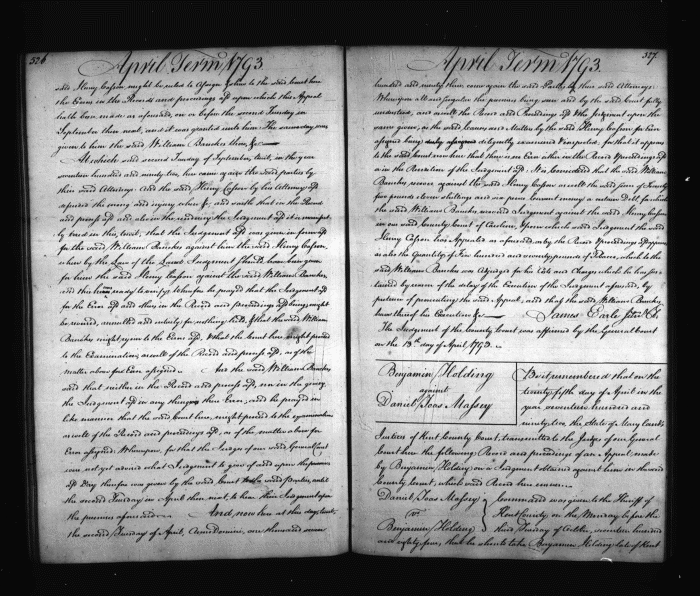 526
April Term 1793.
said Henry Casson might be ruled to Assign Errors to the said Court here
the Errors in the Records and proceedings aforesaid upon which this Appeal
hath been made as aforesaid, on or before the second Tuesday in
September then next, and it was granted unto him The same day was
given to him the said William Banckes there, &c
At which said second Tuesday of September, to wit, in the year
seventeen hundred and ninety two, here came again the said parties by
their said Attornies. And the said Henry Casson by his Attorney
and process aforesaid and also in the rendering the Judgment aforesaid it is manifestly
Erred in this, to wit, that the Judgment aforesaid was given in form aforesaid
for the said William Banckes against him the said Henry Casson,
when by the Law of the Land Judgment should have been given
for him the said Henry Casson against the said William Banckes
and this he is ready to verify Wherefore he prayed that the Judgment aforesaid
for the Error aforesaid and others in the Record and proceedings aforesaid being might
be revised, annulled and entirely for nothing held, & that the said William
Banckes might rejoin to the Errors aforesaid. That the Court here might proceed
to the Examination as well of the Record and process aforesaid, as of the
matter above for Error assigned. And the said William Banckes
said that neither in the Record and process aforesaid, nor in the giving
the Judgment in any thing was there Error, and he prayed in
like manner that the said Court here, might proceed to the examination
as well of the Record and proceedings aforesaid, as of the matter above for
Error assigned. Whereupon, for that the Judges of our said General Court
were not yet advised what Judgment to give of and upon the premises
aforesaid Day therefore was given by the said Court
the second Tuesday in April then next, to hear their Judgment upon
the premises aforesaid. And now here at this day, to wit,
the second Tuesday of April, Anno Domini, one thousand seven
527
April Term 1793.
hundred and ninety three, came again the said Parties by their said Attornies.
Whereupon all and singular the premises being seen and by the said Court fully
understood, and as well the Record and Proceedings aforesaid & the Judgment upon the
same given, as the said Causes and Matters by the said Henry Casson for Error
assigned being duly assigned diligently examined & inspected, for that it appears
to the said Court now here that there is no Error either in the Record & proceedings aforesaid
or in the Rendition of the Judgment aforesaid. It is Considered that the said William
Banckes recover against the said Henry Casson as well the said sum of Twenty
five pounds
the said William Banckes recovered Judgment against the said Henry Casson
in our said County Court of Caroline, Upon which said Judgment the said
Henry Casson hath Appealed as aforesaid, as by the Record & proceedings aforesaid appears
as also the Quantity of Five hundred and seventy pounds of Tobacco, which to the
said William Banckes was Adjudged for his Costs and Charges which he has sus-
tained by reason of the delay of the Execution of the Judgment aforesaid, by
pretence of prosecuting the said Appeal, and that the said William Banckes
have thereof his Execution &c
James Earle junr Clk
The Judgment of the County Court was affirmed by the General Court
on the 13th day of April 1793.
Benjamin Holding
against
Daniel Toas Massey
Be it remembered that on the
twenty fifth day of April in the
year seventeen hundred and
ninety two, the State of Maryland's
Justices of Kent County Court, transmitted to the Judges of our General
Court here the following Record and proceedings of an Appeal made
by Benjamin Holding on a Judgment obtained against him in the said
County Court, which said Record here ensues.
Daniel Toas Massey
vs
Benjamin Holding
Command was given to the Sheriff of
Kent County on the Monday before the
third Tuesday of October, seventeen hundred
and eighty four, that he should take Benjamin Holding late of Kent